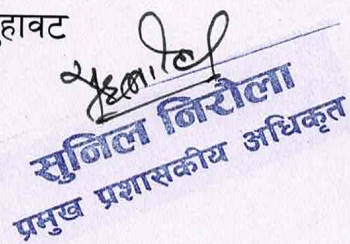 हावट
सुनिल निरौला
प्रमुख प्रशासकीय अधिकृत